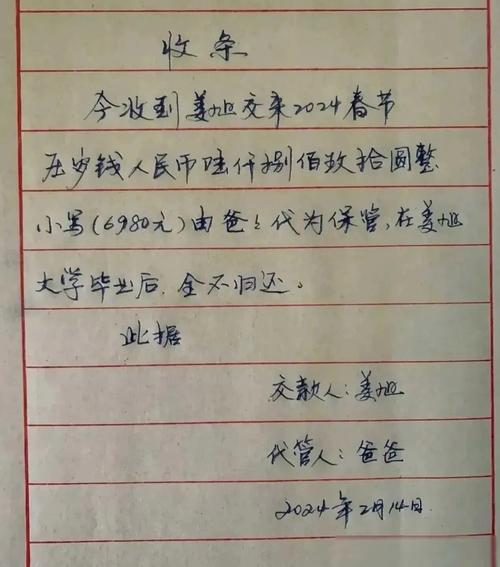 收条
今收到姜旭交来2024春节
压岁钱人民币陆仟捌佰数拾圆整
小写(6980元)由爸々代为保管,在姜旭
大学毕业后,全不归还。
此据
交款人:姜旭
代管人:爸爸
2024年2月14日